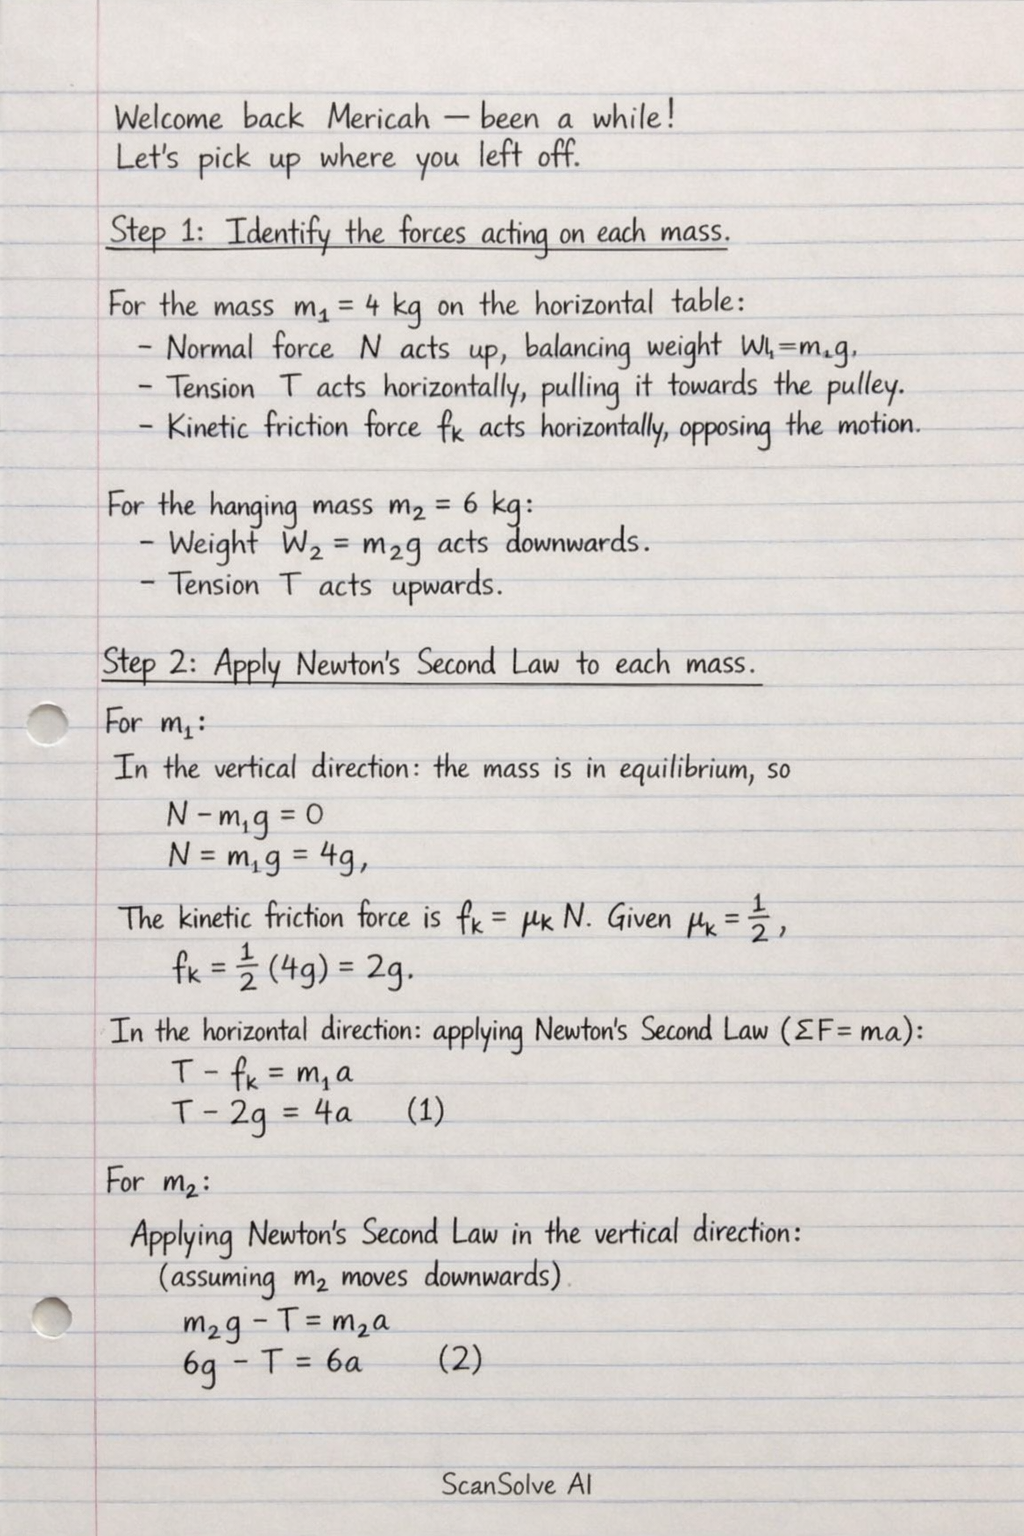 Welcome back Mericah — been a while!
Let's pick up where you left off.
Step 1: Identify the forces acting on each mass.
For the mass m₁ = 4 kg on the horizontal table:
- Normal force N acts up, balancing weight
- Tension T acts horizontally, pulling it towards the pulley.
- Kinetic friction force fₖ acts horizontally, opposing the motion.
For the hanging mass m₂ = 6 kg:
- Weight W₂ = m₂g acts downwards.
- Tension T acts upwards.
Step 2: Apply Newton's Second Law to each mass.
For m₁:
In the vertical direction: the mass is in equilibrium, so
N - m₁g = 0
N = m₁g = 4g,
The kinetic friction force is fₖ = μₖ N. Given μₖ = 1/2,
fₖ = 1/2 (4g) = 2g.
In the horizontal direction: applying Newton's Second Law (ΣF = ma):
T - fₖ = m₁a
T - 2g = 4a (1)
For m₂:
Applying Newton's Second Law in the vertical direction:
(assuming m₂ moves downwards).
m₂g - T = m₂a
6g - T = 6a (2)
ScanSolve AI